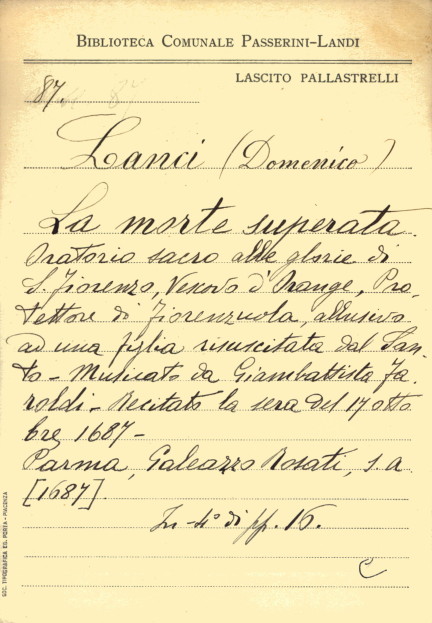 BIBLIOTECA COMUNALE PASSERINI-LANDI
LASCITO PALLASTRELLI
87.
Lanci (Domenico)
La morte superata.
Oratorio sacro alle glorie di
S. Fiorenzo, Vescovo d'Orange, Pro-
tettore di Fiorenzuola, allusivo
ad una figlia risuscitata dal San-
to - Musicato da Giambattista Fa-
roldi - Recitato la sera del 17 otto
bre 1687 -
Parma, Galeazzo Rosati, s. a
[1687].
In-4° di pp. 16.
C
SOC. TIPOGRAFICA ED. PORTA - PIACENZA